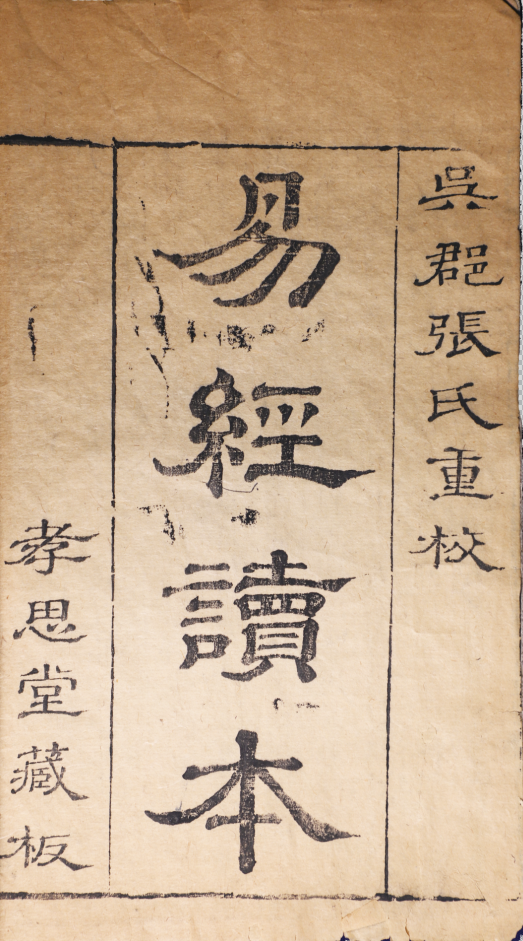 吳郡張氏重校
易經讀本
孝思堂藏板